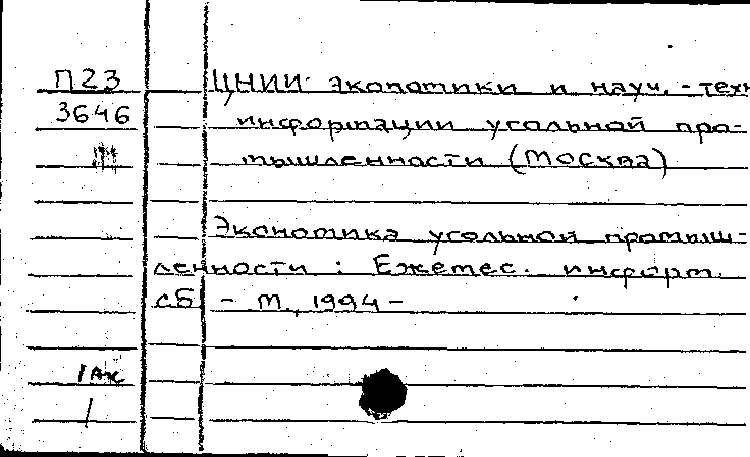 П23 ЦНИИ экономики и науч.-техн
3646 информации угольной про-
мышленности (Москва)
Экономика угольной промыш-
ленности : Ежемес. информ.
сб. - М, 1994 -